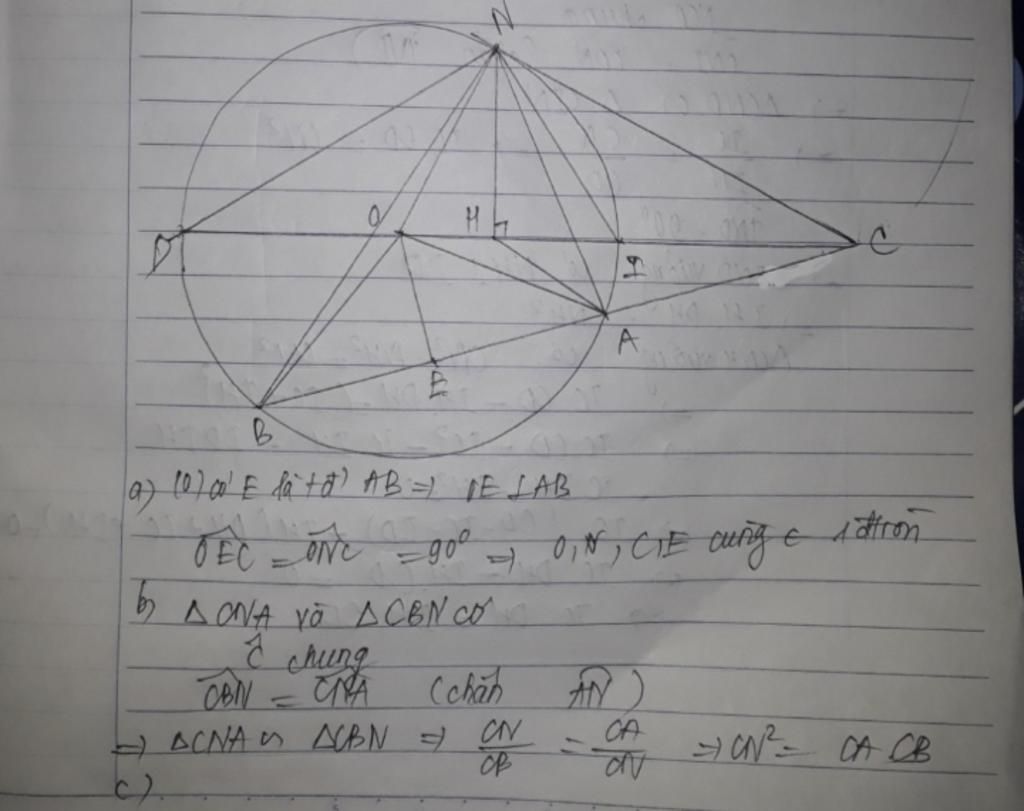 N
D
O
H
I
C
A
E
B
a) (O) có E là tđ AB => OE ⊥ AB
OEC = ONC = 90° => O, N, C, E cùng ∈ 1 đtròn
b) ΔCNA và ΔCBN có
Ĉ chung
CBN = CNA (chắn AN)
=> ΔCNA ∽ ΔCBN => CN/CB = CA/CN => CN² = CA.CB
c)